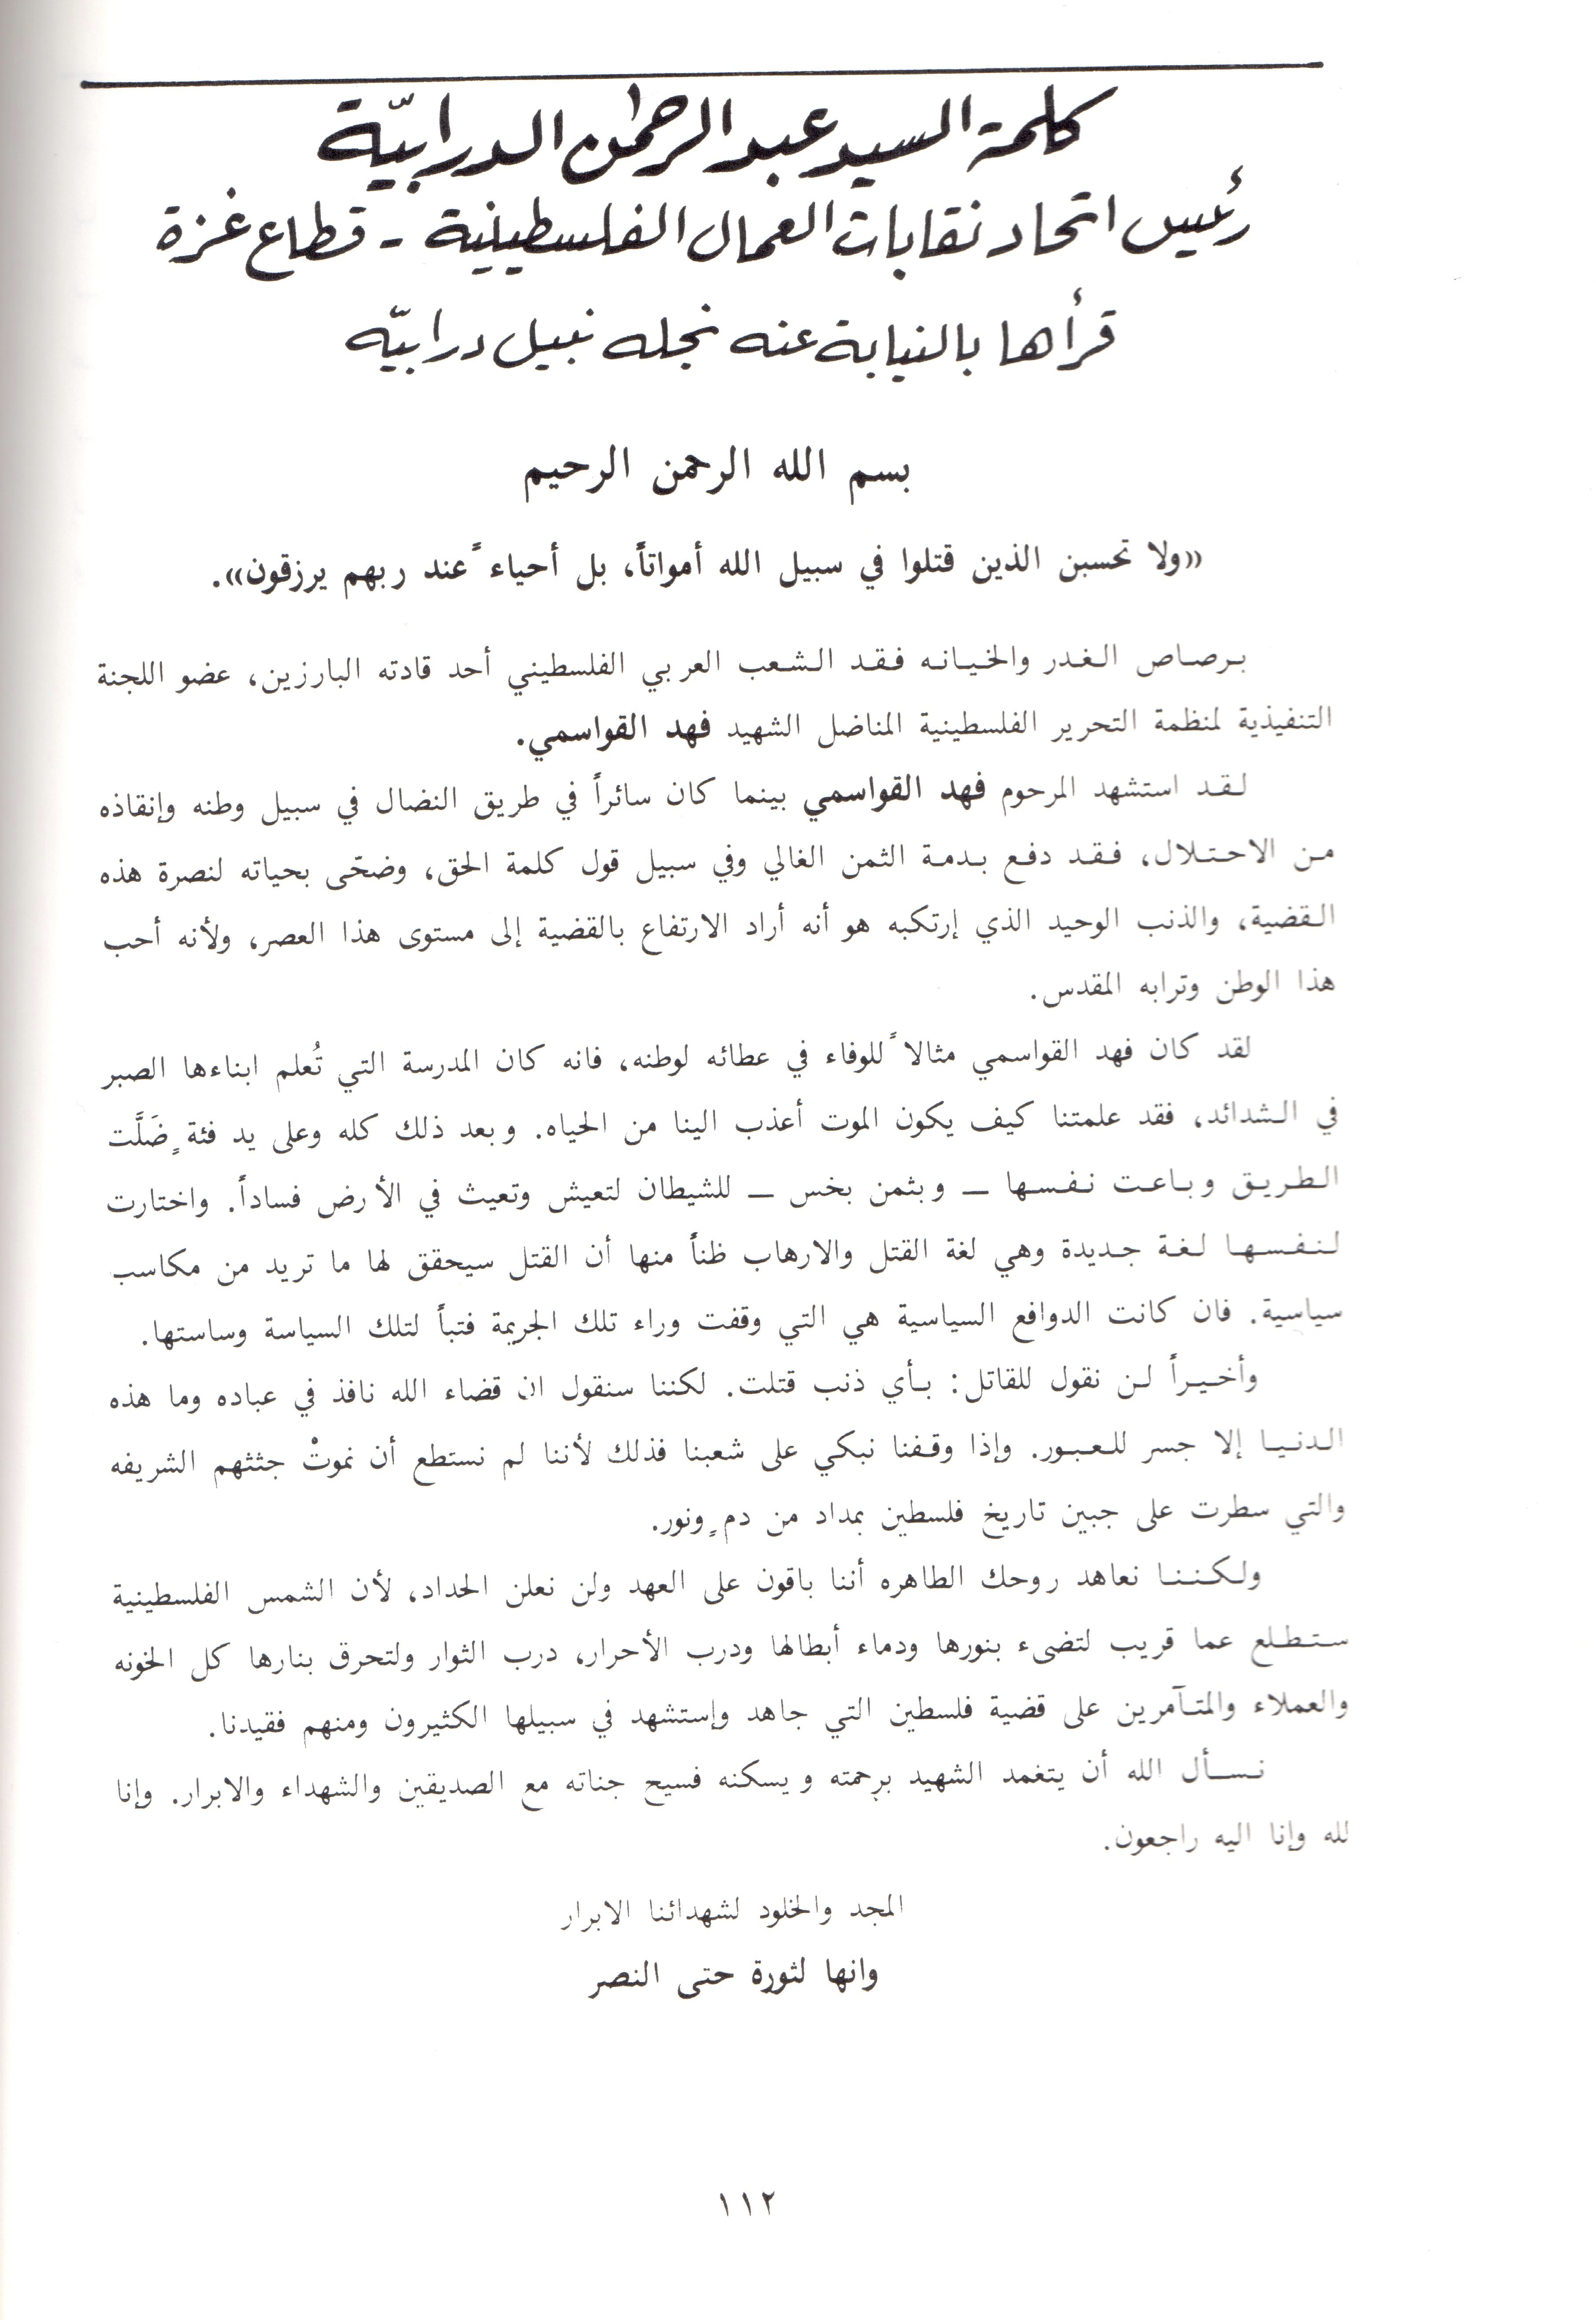 كلمة السيد عبد الرحمٰن الدرابيّة
رئيس اتحاد نقابات العمال الفلسطينية - قطاع غزة
قرأها بالنيابة عنه نجله نبيل درابيّه
بسم الله الرحمن الرحيم
«ولا تحسبن الذين قتلوا في سبيل الله أمواتاً، بل أحياء ً عند ربهم يرزقون».
برصاص الغدر والخيانه فقد الشعب العربي الفلسطيني أحد قادته البارزين، عضو اللجنة
التنفيذية لمنظمة التحرير الفلسطينية المناضل الشهيد فهد القواسمي.
لقد استشهد المرحوم فهد القواسمي بينما كان سائراً في طريق النضال في سبيل وطنه وإنقاذه
من الاحتلال، فقد دفع بدمة الثمن الغالي وفي سبيل قول كلمة الحق، وضحّى بحياته لنصرة هذه
القضية، والذنب الوحيد الذي إرتكبه هو أنه أراد الارتفاع بالقضية إلى مستوى هذا العصر، ولأنه أحب
هذا الوطن وترابه المقدس.
لقد كان فهد القواسمي مثالا ً للوفاء في عطائه لوطنه، فانه كان المدرسة التي تُعلم ابناءها الصبر
في الشدائد، فقد علمتنا كيف يكون الموت أعذب الينا من الحياه. وبعد ذلك كله وعلى يد فئة ٍ ضَلَّت
الطريق وباعت نفسها ــ وبثمن بخس ــ للشيطان لتعيش وتعيث في الأرض فساداً. واختارت
لنفسها لغة جديدة وهي لغة القتل والارهاب ظناً منها أن القتل سيحقق لها ما تريد من مكاسب
سياسية. فان كانت الدوافع السياسية هي التي وقفت وراء تلك الجريمة فتباً لتلك السياسة وساستها.
وأخيراً لن نقول للقاتل: بأي ذنب قتلت. لكننا سنقول ان قضاء الله نافذ في عباده وما هذه
الدنيا إلا جسر للعبور. وإذا وقفنا نبكي على شعبنا فذلك لأننا لم نستطع أن نموتْ جثثهم الشريفه
والتي سطرت على جبين تاريخ فلسطين بمداد من دم ٍ ونور.
ولكننا نعاهد روحك الطاهره أننا باقون على العهد ولن نعلن الحداد، لأن الشمس الفلسطينية
ستطلع عما قريب لتضىء بنورها ودماء أبطالها ودرب الأحرار، درب الثوار ولتحرق بنارها كل الخونه
والعملاء والمتآمرين على قضية فلسطين التي جاهد وإستشهد في سبيلها الكثيرون ومنهم فقيدنا.
نسأل الله أن يتغمد الشهيد برحمته ويسكنه فسيح جناته مع الصديقين والشهداء والابرار. وإنا
لله وإنا اليه راجعون.
المجد والخلود لشهدائنا الابرار
وانها لثورة حتى النصر
١١٢